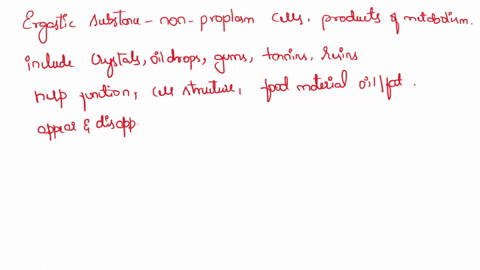 Ergastic substane - non-proplasm cells. products of mitabolism.
include Crystals, oil drops, gums, tannins, resins
help function, cell structure, food material oil/fat.
appear & disapp